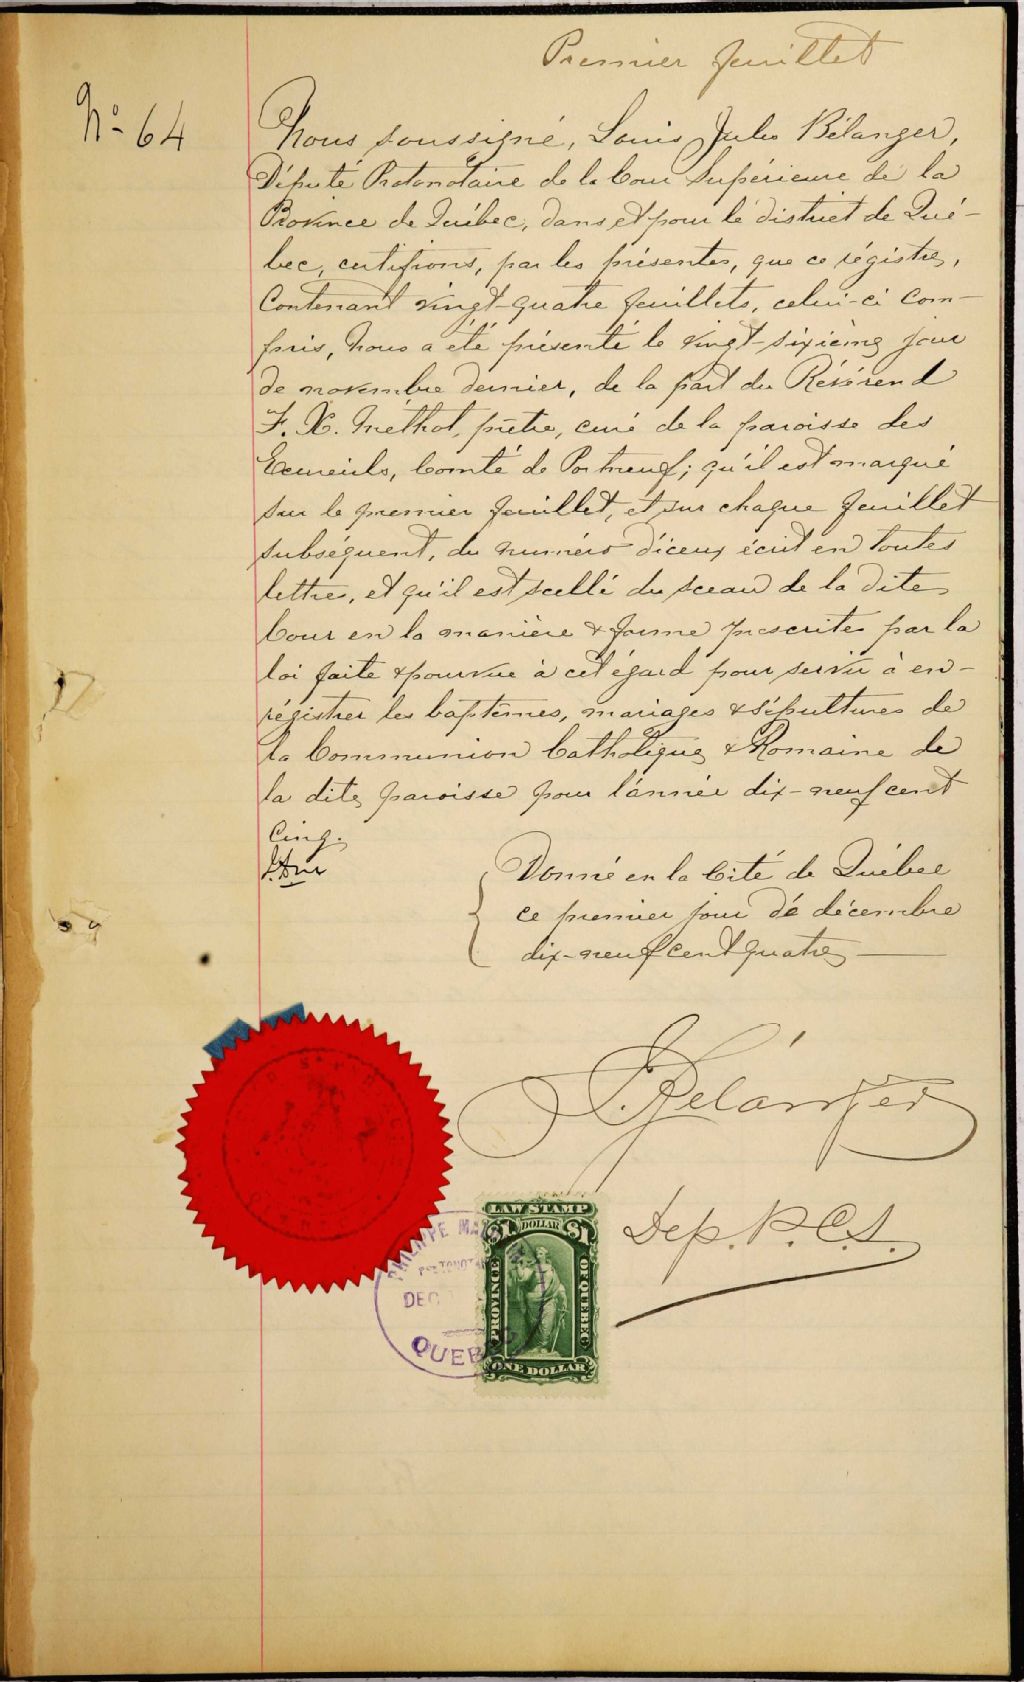 Premier feuillet
No 64
Nous soussigné, Louis Jules Bélanger,
Député Protonotaire de la Cour Supérieure de la
Province de Québec, dans et pour le district de Qué-
bec, certifions, par les présentes, que ce régistre,
Contenant vingt-quatre feuillets, celui-ci com-
pris, nous a été présenté le vingt-sixième jour
de novembre dernier, de la part du Révérend
F. X. Méthot, prêtre, curé de la paroisse des
Ecureuils, Comté de Portneuf; qu'il est marqué
sur le premier feuillet, et sur chaque feuillet
subséquent, du numéro d'iceux écrit en toutes
lettres, et qu'il est scellé du sceau de la dite
Cour en la manière & forme prescrites par la
loi faite & pourvue à cet égard pour servir à en-
régistrer les baptêmes, mariages & sépultures de
la Communion Catholique & Romaine de
la dite paroisse pour l'année dix-neuf cent
Cinq.
Donné en la Cité de Québec
ce premier jour de décembre
dix-neuf cent quatre
J. Bélanger
Dep. P.C.S.
LAW STAMP
$1 DOLLAR $1
PROVINCE OF QUEBEC
ONE DOLLAR
PHILIPPE
DEC
QUEBEC